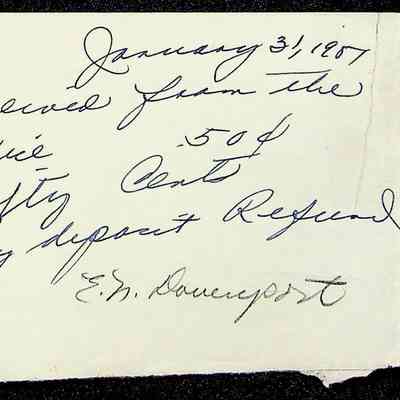 January 31, 1901
eived from the
ice .50¢
fty Cents
y deposit Refund
E.N. Davenport